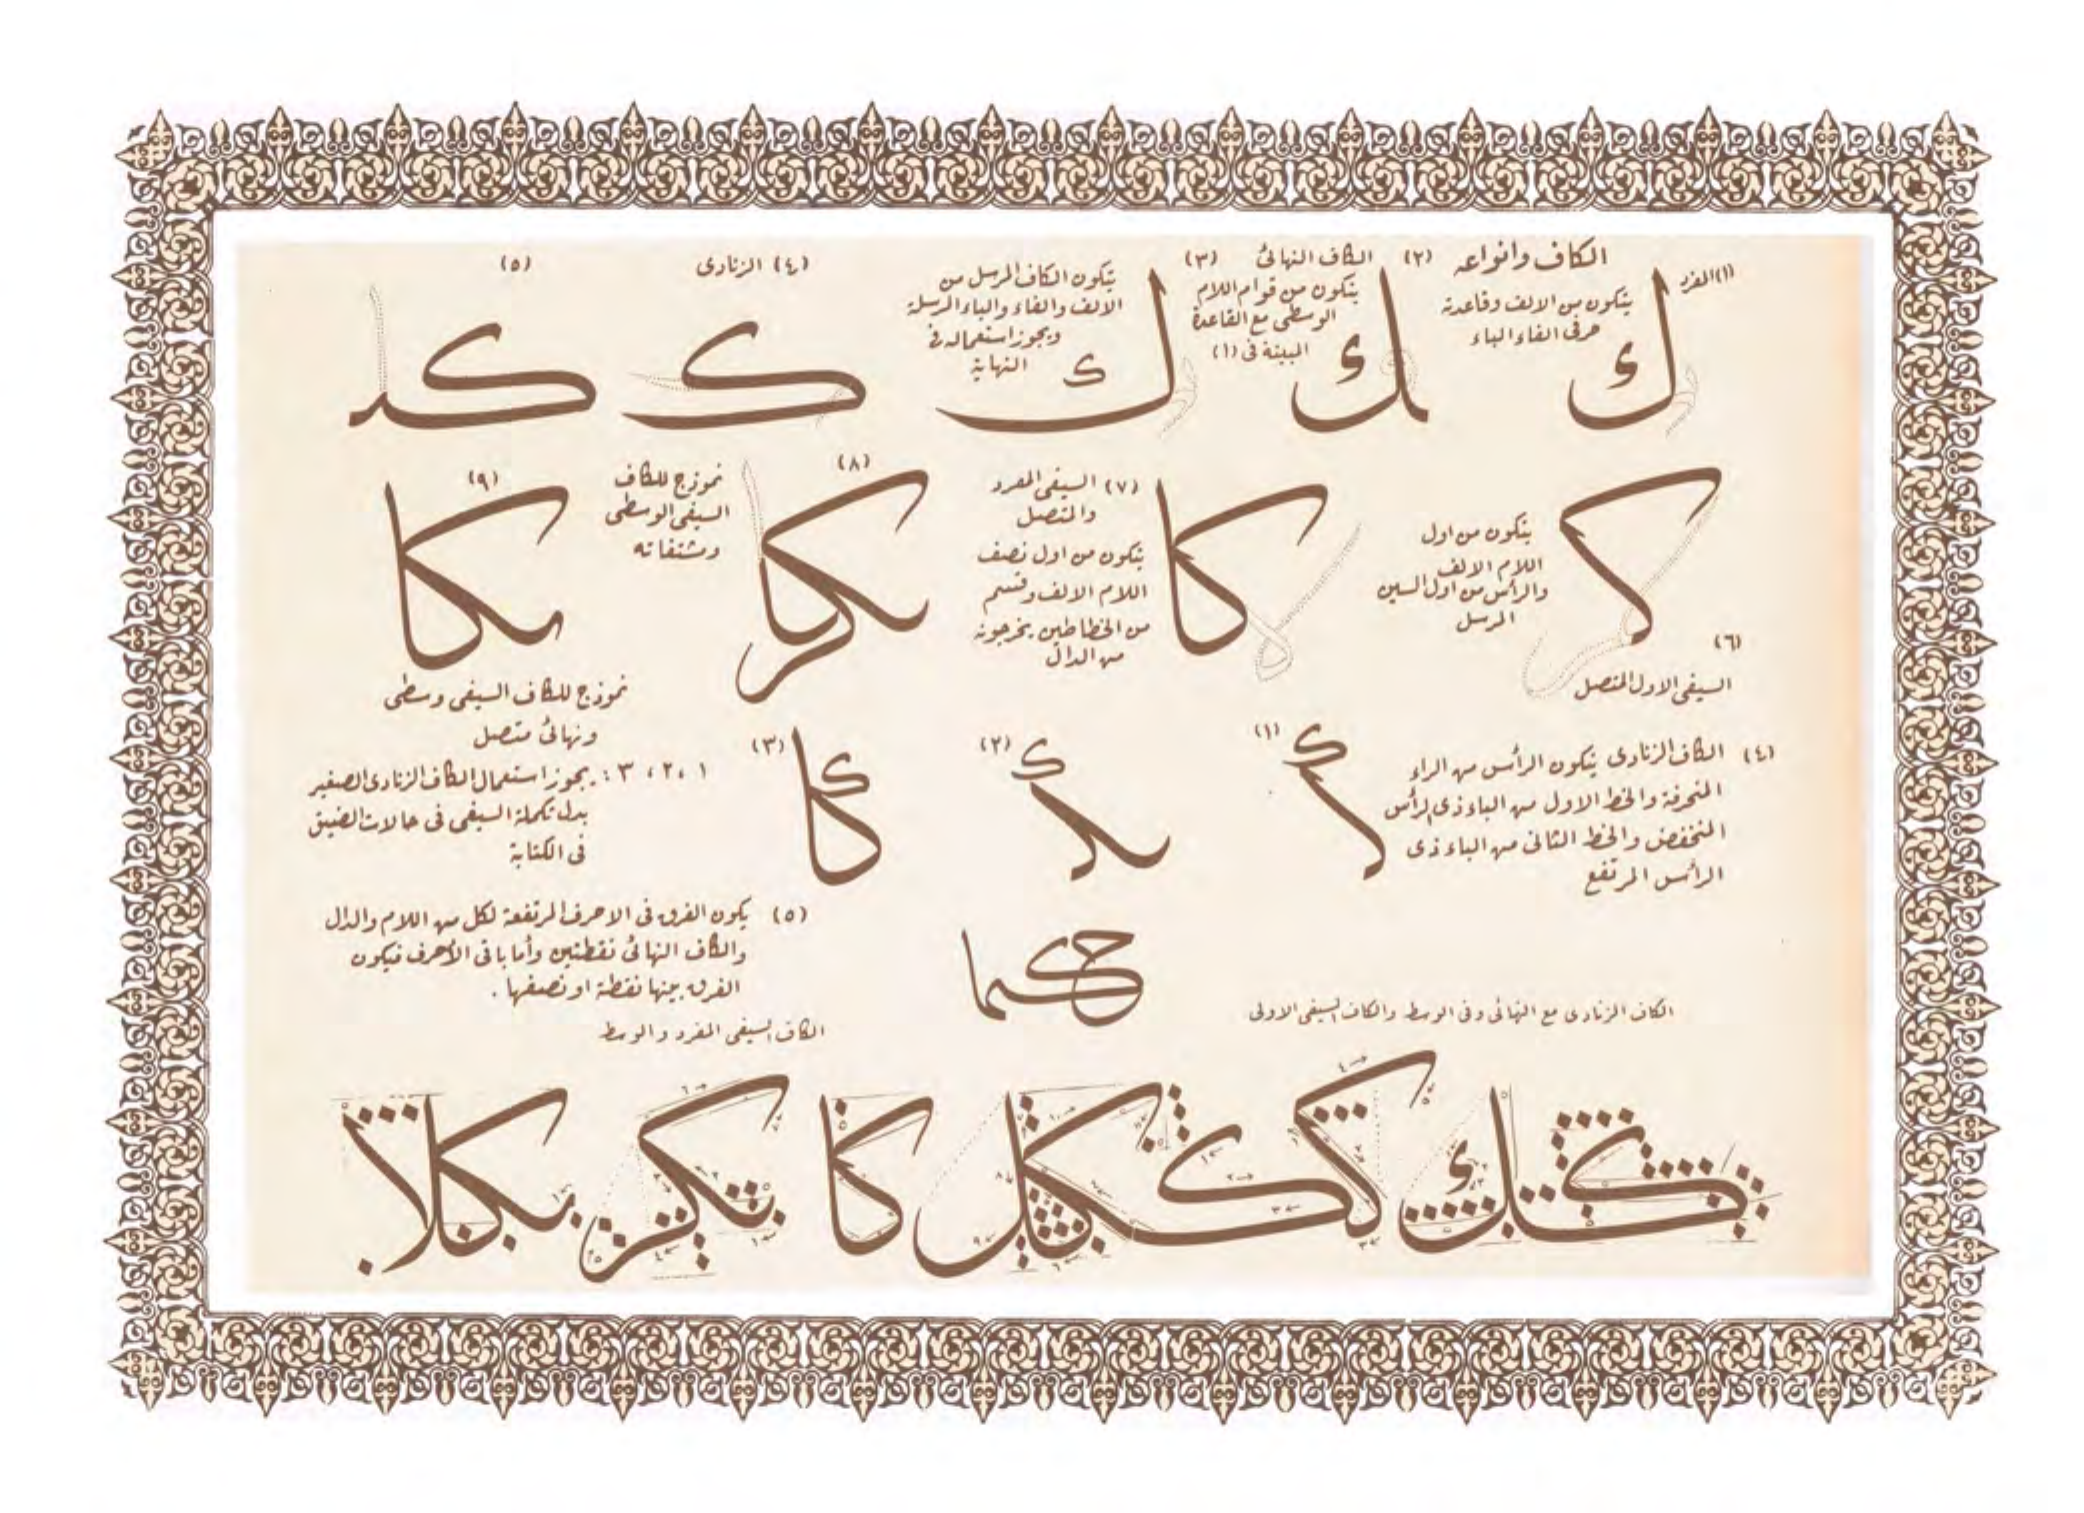 الكاف وانواعه
(١) المفرد
يتكون من الالف وقاعدته
حرفى الفاء او الباء
ك
(٢) الكاف النهائى
يتكون من قوام اللام
الوسطى مع القاعدة
المبينة فى (١)
ـك
(٣)
يتكون الكاف المرسل من
الالف والفاء والباء المرسلة
ويجوز استعماله فى
النهاية
ك
(٤) الزنادى
ك
(٥)
كد
يتكون من اول
اللام الالف
والرأس من اول السين
المرسل
(٦)
السيفى الاول المتصل
(٧) السيفى المفرد
والمتصل
يتكون من اول نصف
اللام الالف وقسم
من الخطاطين يخرجونه
من الدال
كا
(٨)
نموزج للكاف
السيفى الوسطى
ومشتقاته
(٩)
مكا
نموذج للكاف السيفى وسطى
ونهائى متصل
(٤) الكاف الزنادى يتكون الرأس من الراء
المنحرفة والخط الاول من الباء ذى الرأس
المنخفض والخط الثانى من الباء ذى
الرأس المرتفع
(١)
(٢)
(٣)
كا
١ ،٢ ، ٣ : يجوز استعمال الكاف الزنادى الصغير
بدل تكملة السيفى فى حالات الضيق
فى الكتابة
(٥) يكون الفرق فى الاحرف المرتفعة لكل من اللام والدال
والكاف النهائى نقطتين وأما باقى الأحرف فيكون
الفرق بينها نقطة او نصفها .
حكما
الكاف الزنادى مع النهائى وفى الوسط والكاف السيفى الاولى
الكاف السيفى المفرد والوسط
كا